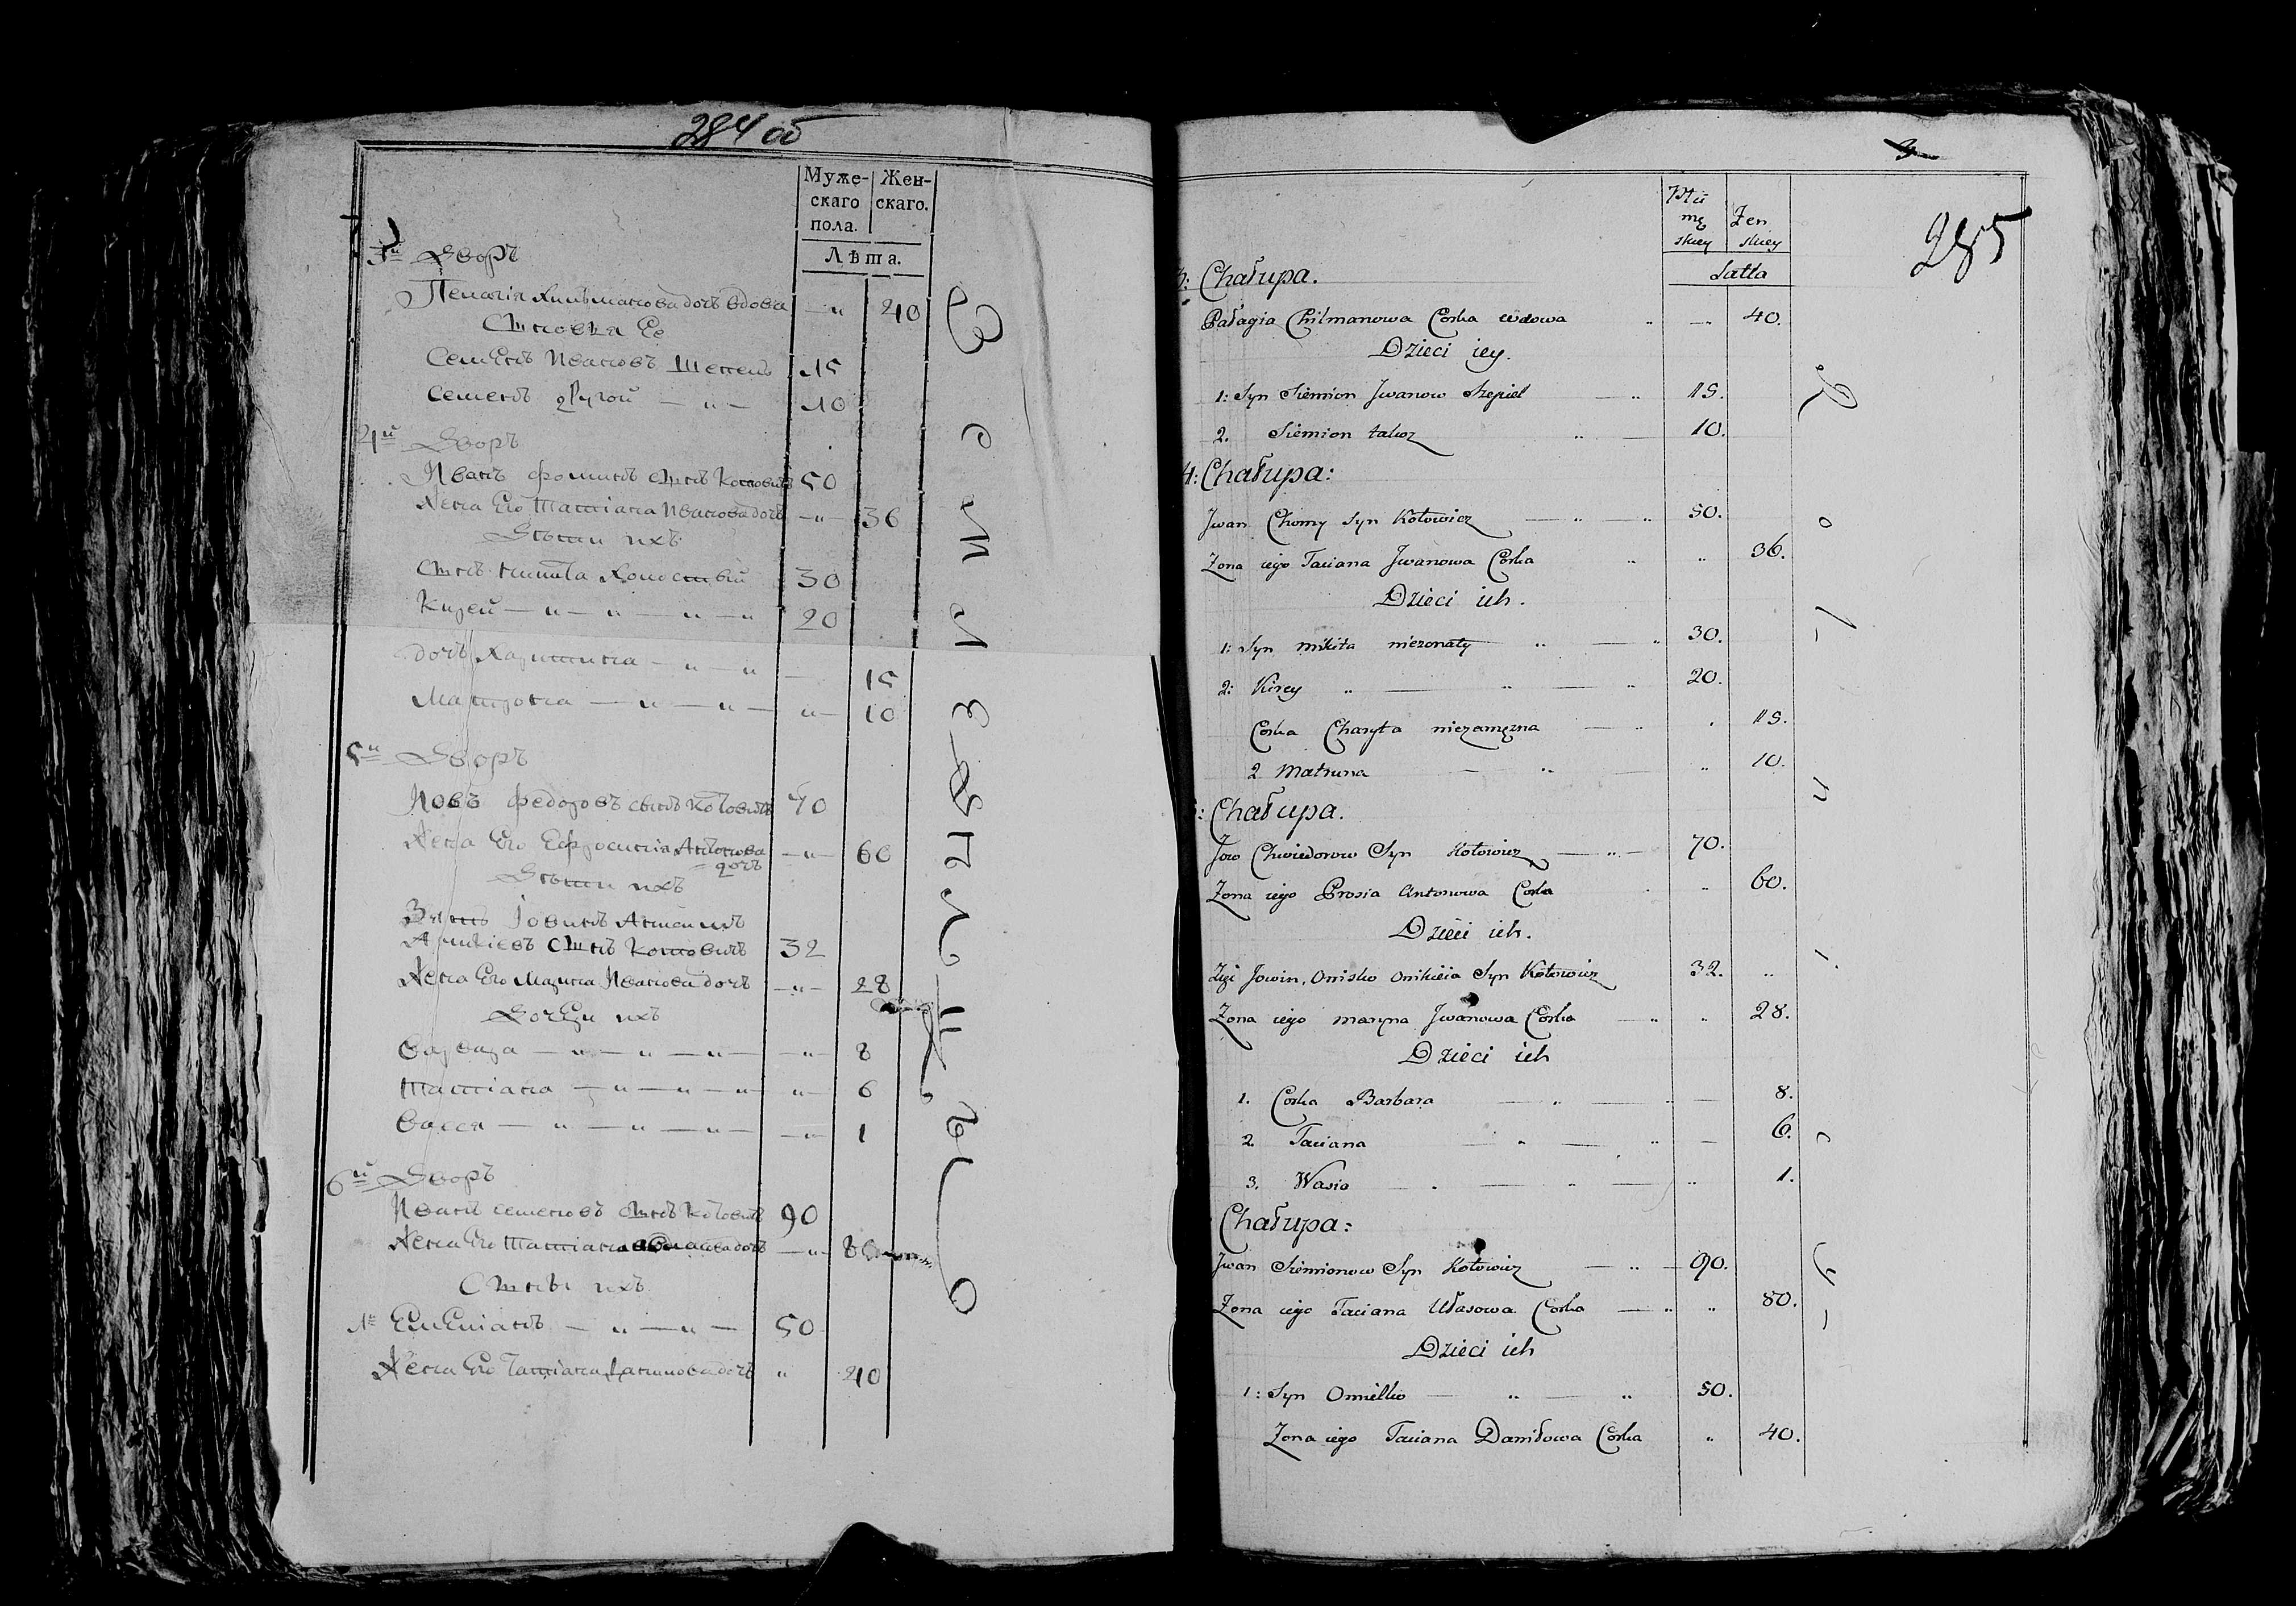 284 об
Муже-
скаго
пола.
Жен-
скаго.
Лѣта.
3й Дворъ
Пелагія Хильманова дочь вдова — " 40
Сыновья Ее
Семенъ Ивановъ Шепель 15
Семенъ другой — " — 10
4й Дворъ
Иванъ Фоминъ сынъ Котовичъ 50
Жена Его Татіана Иванова дочь — " — 36
Дѣти ихъ
Сынъ Никита Холостый 30
Кирей — " — " — " — " 20
дочь Харитина — " — " — 15
Матрона — " — " — " — 10
5й Дворъ
Іовъ Федоровъ сынъ Котовичъ 70
Жена Его Ефросинія Антонова — " — 60
дочь
Дѣти ихъ
Зять Іовинъ
Аникіевъ сынъ Котовичъ 32
Жена Его Марина Иванова дочь — " — 28
Дочери ихъ
Варвара — " — " — " — — " — 8
Татіана — " — " — " — " — 6
Васся — " — " — " — — " — 1
6й Дворъ
Иванъ Семеновъ сынъ Котовичъ 90
Жена Его Татіана дочь — " — 80
Сыны ихъ
1й Емельянъ — " — " — 50
Жена Его Татіана дочь " 40
3
285
Mę
skiey
Żen
skiey
Latta
3: Chałupa.
Pałagia Chilmanowa Corka wdowa " — " — 40.
Dzieci iey.
1: Syn Siemion Jwanow Szepiel — " 15.
2. Siemion takoz " — 10.
4: Chałupa:
Jwan Chomy Syn Kotowicz — " — " 50.
Zona iego Taciana Jwanowa Corka " " 36.
Dzieci ich.
1: Syn Mikita niezonaty " — " 30.
2: Kirey " — " — " 20.
Corka Charyta niezamęzna — " " 15.
2 Matruna — " — " 10.
: Chałupa.
Jow Chwiedorow Syn Kotowicz — " — 70.
Zona iego Prosia Antonowa Corka " " 60.
Dzieci ich.
Jowin, Onisko Onikieia Syn Kotowicz 32. "
Zona iego Maryna Jwanowa Corka — " " 28.
Dzieci ich
1. Corka Barbara — " — " — 8.
2. Taciana — " — " — 6.
3. Wasia " — " — " 1.
Chałupa:
Jwan Siemionow Syn Kotowicz — " — 90.
Zona iego Taciana Ułasowa Corka — " " 80.
Dzieci ich
1: Syn Omielko — " — " 50.
Zona iego Taciana Daniłowa Corka " 40.